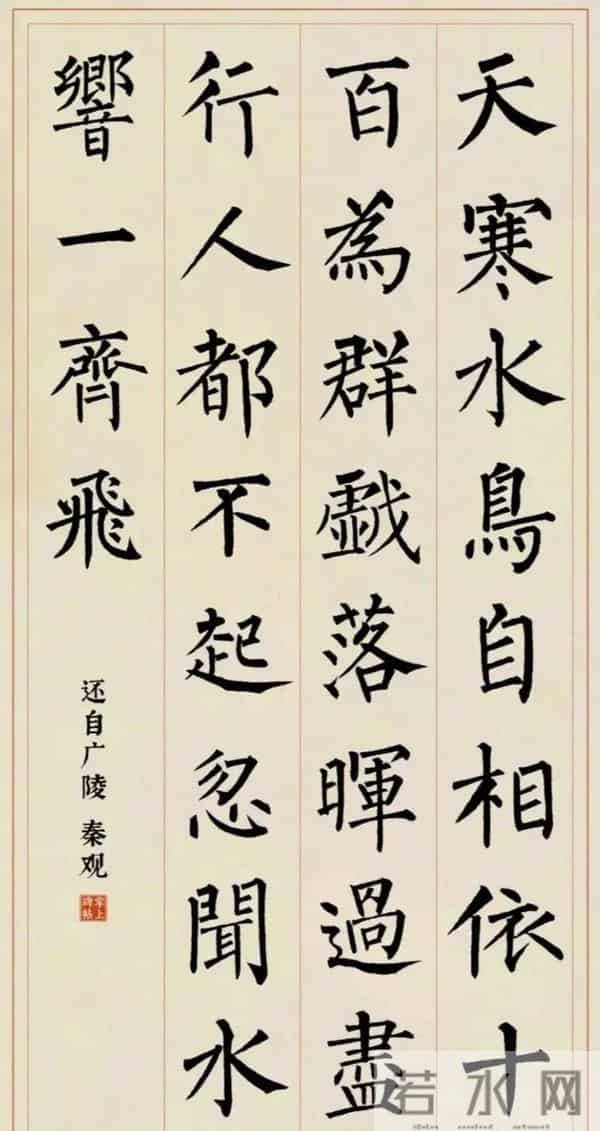 天寒水鳥自相依十
百為群戲落暉過盡
行人都不起忽聞水
響一齊飛
还自广陵 秦观
掌上碑帖
若水网